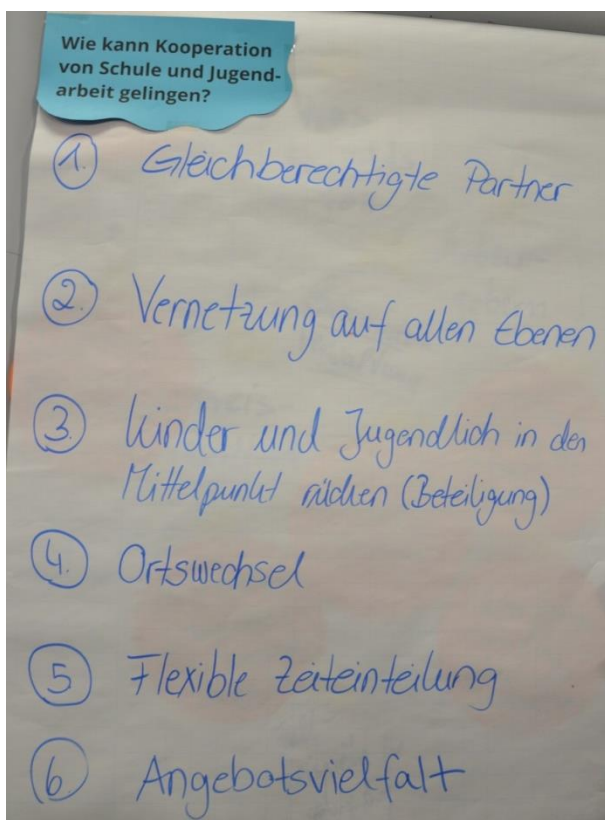 Wie kann Kooperation
von Schule und Jugend-
arbeit gelingen?
1. Gleichberechtigte Partner
2. Vernetzung auf allen Ebenen
3. Kinder und Jugendlich in den
Mittelpunkt rücken (Beteiligung)
4. Ortswechsel
5 Flexible Zeiteinteilung
6 Angebotsvielfalt